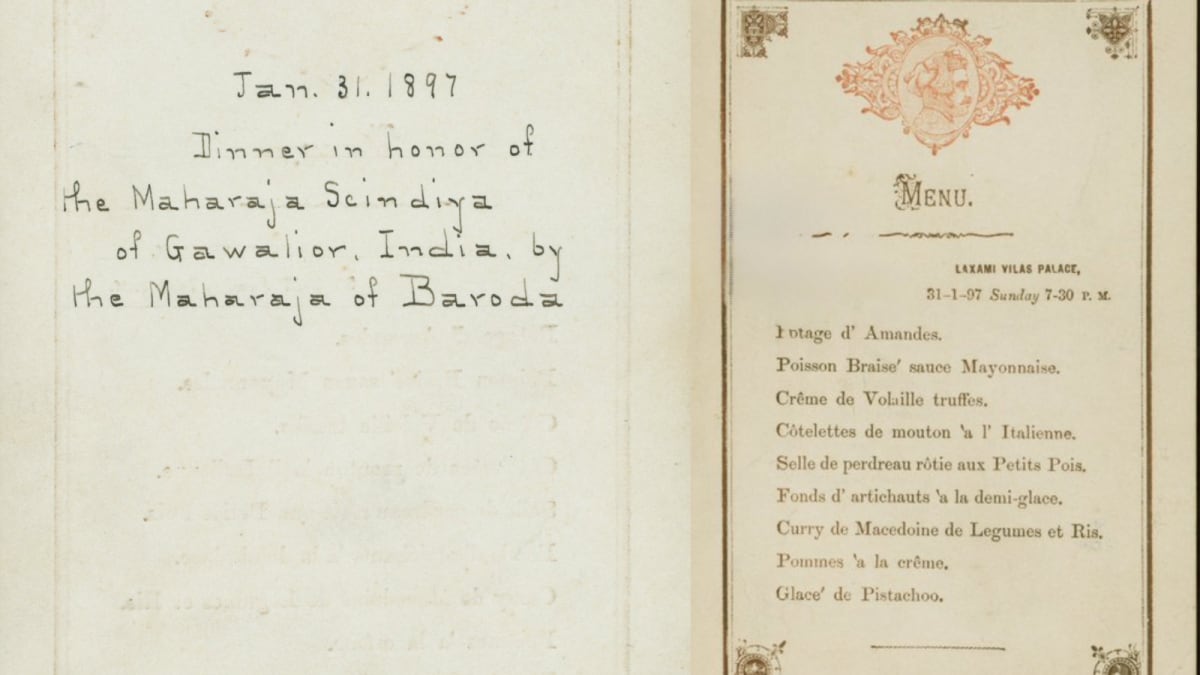 Jan. 31. 1897
Dinner in honor of
the Maharaja Scindiya
of Gawalior, India, by
the Maharaja of Baroda
MENU.
LAXAMI VILAS PALACE,
31-1-97 Sunday 7-30 P. M.
Potage d' Amandes.
Poisson Braise' sauce Mayonnaise.
Crême de Volaille truffes.
Côtelettes de mouton 'a l' Italienne.
Selle de perdreau rôtie aux Petits Pois.
Fonds d' artichauts 'a la demi-glace.
Curry de Macedoine de Legumes et Ris.
Pommes 'a la crême.
Glace' de Pistachoo.